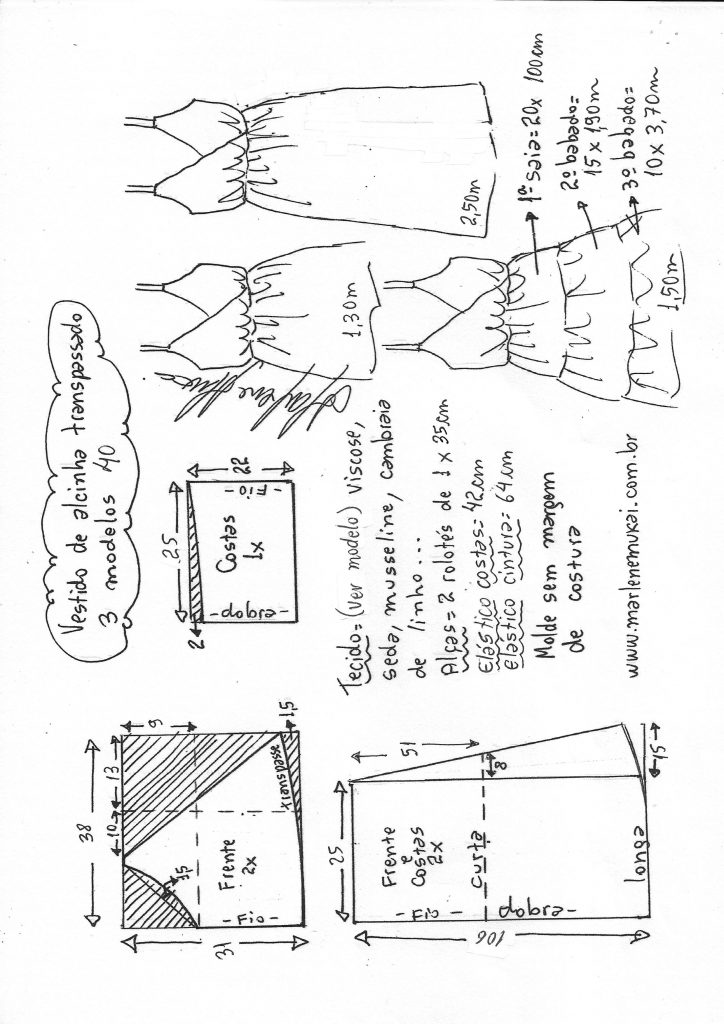 Vestido de alcinha transpassado
3 modelos 40
38
10
13
9
31
1,5
1,5
Frente
2x
Transpasse
- Fio -
2
25
22
Costas
1x
- Fio -
- dobra -
25
Frente
e
Costas
2x
curta
51
8
- Fio -
dobra -
106
longa
15
Tecido= (ver modelo) viscose,
seda, musseline, cambraia
de linho...
Alças= 2 rolotés de 1 x 35cm
Elástico costas= 42cm
elástico cintura= 64cm
Molde sem margem
de costura
www.marlenemukai.com.br
Marlene Mukai
1,30m
2,50m
1,50m
1ª saia= 20 x 100cm
2º babado=
15 x 1,90m
3º babado=
10 x 3,70m